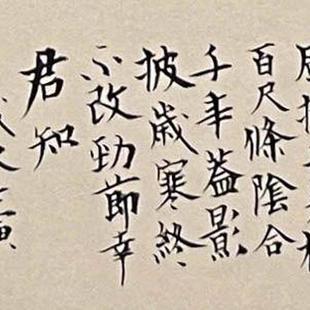 百尺條陰合
千年蓋影
披歲寒終
不改勁節幸
君知